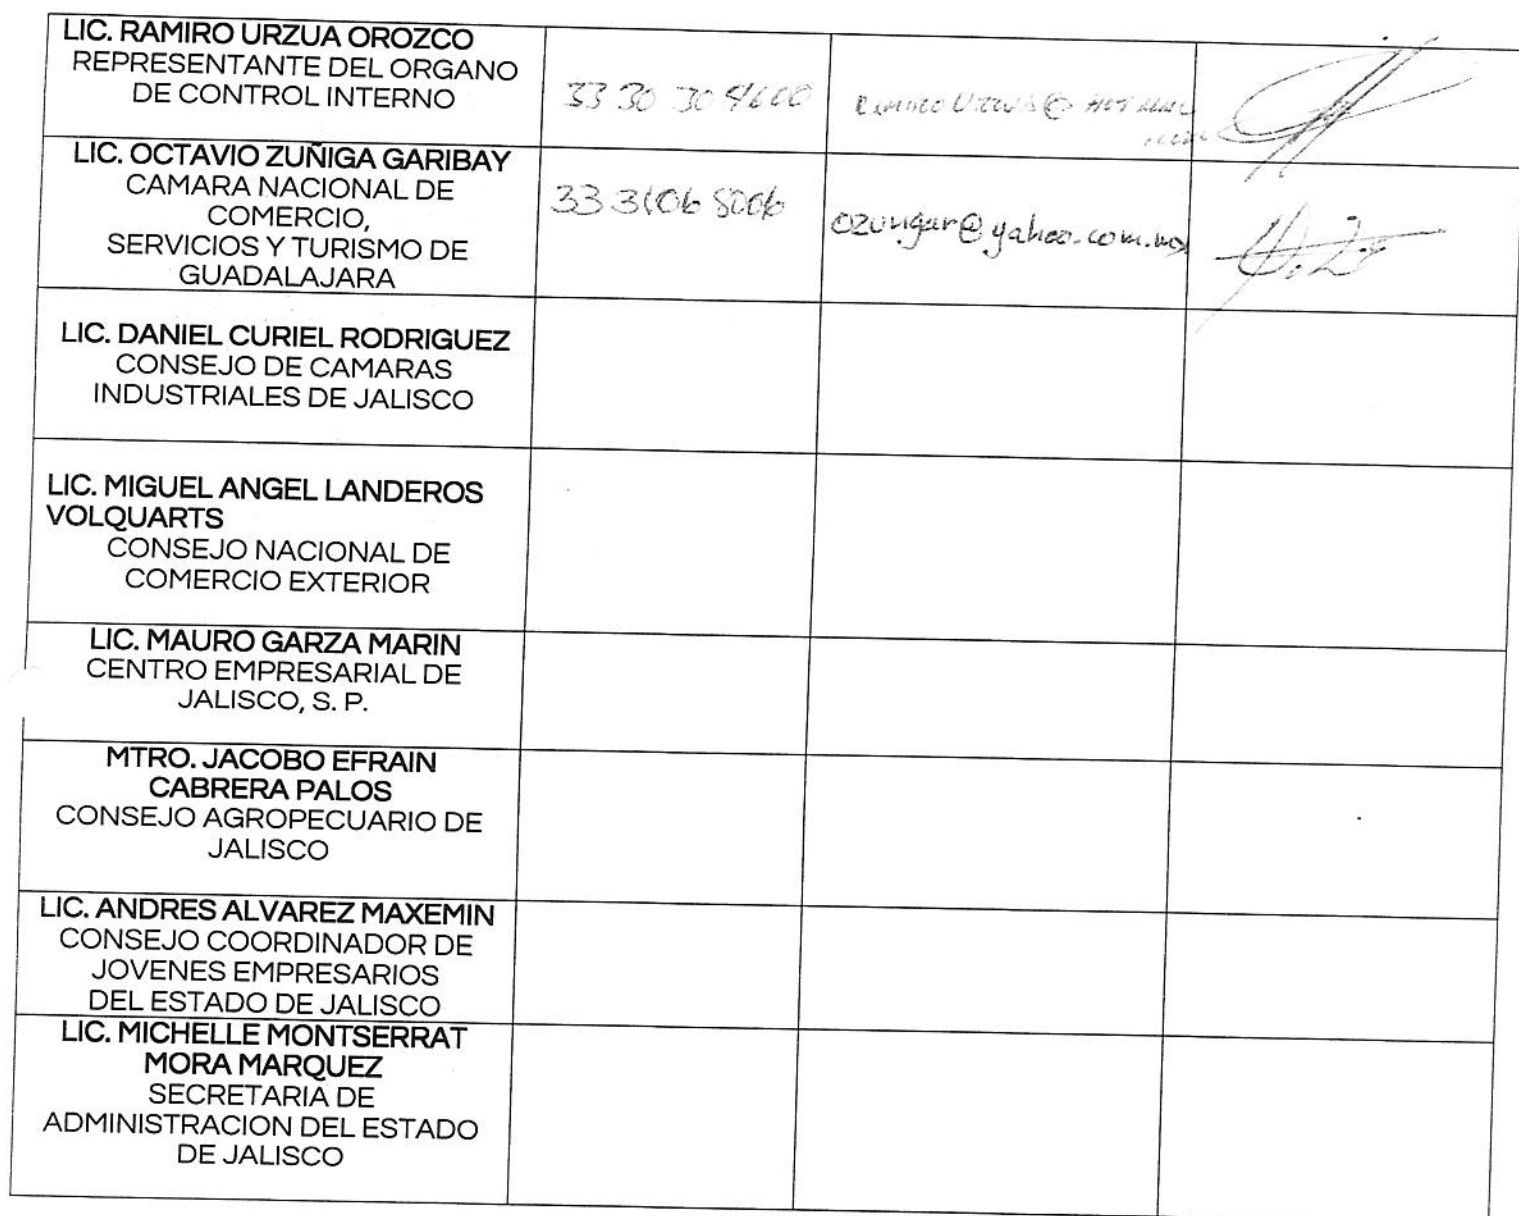 LIC. RAMIRO URZUA OROZCO
REPRESENTANTE DEL ORGANO
DE CONTROL INTERNO
33 30 30 4600
LIC. OCTAVIO ZUÑIGA GARIBAY
CAMARA NACIONAL DE
COMERCIO,
SERVICIOS Y TURISMO DE
GUADALAJARA
33 3106 8006
ozungar@yahoo.com.mx
LIC. DANIEL CURIEL RODRIGUEZ
CONSEJO DE CAMARAS
INDUSTRIALES DE JALISCO
LIC. MIGUEL ANGEL LANDEROS
VOLQUARTS
CONSEJO NACIONAL DE
COMERCIO EXTERIOR
LIC. MAURO GARZA MARIN
CENTRO EMPRESARIAL DE
JALISCO, S. P.
MTRO. JACOBO EFRAIN
CABRERA PALOS
CONSEJO AGROPECUARIO DE
JALISCO
LIC. ANDRES ALVAREZ MAXEMIN
CONSEJO COORDINADOR DE
JOVENES EMPRESARIOS
DEL ESTADO DE JALISCO
LIC. MICHELLE MONTSERRAT
MORA MARQUEZ
SECRETARIA DE
ADMINISTRACION DEL ESTADO
DE JALISCO